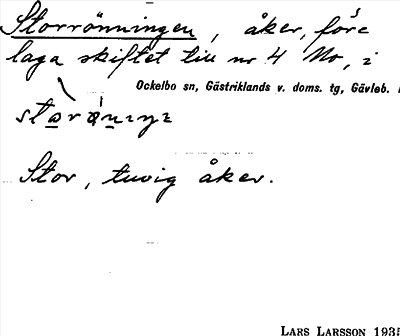 Storrönningen, åker, före
laga skiftet till nr 4 Mo, i
Ockelbo sn, Gästriklands v. doms. tg, Gävleb.
Stor, tuvig åker.
LARS LARSSON 1935